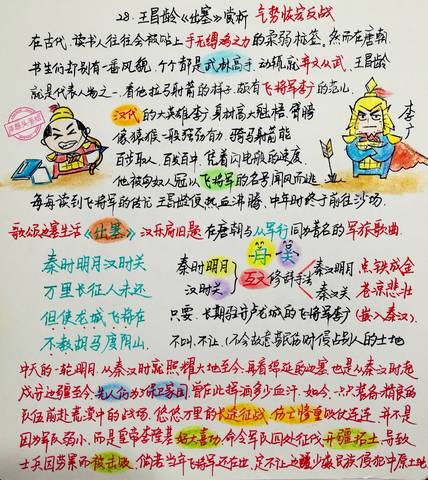 28. 王昌龄《出塞》赏析 气势恢宏反战
在古代,读书人往往会被贴上手无缚鸡之力的柔弱标签。然而在唐朝
书生们却别有一番风貌,个个都是武林高手,动辄就弃文从武。王昌龄
就是代表人物之一,看他拉弓射箭的样子,颇有飞将军李广的
汉代的大英雄李广身材高大魁梧,臂膀
像猿猴一般强劲有力,骑马射箭能
百步取人,百发百中,凭着闪电般的速度
他被匈奴人冠以飞将军的名号闻风而逃
李广
每每读到飞将军的传记,王昌龄便热血沸腾,中年时终于前往沙场。
歌颂边塞生活《出塞》汉乐府旧题 在唐朝与从军行同为著名的军旅歌曲。
秦时明月汉时关
万里长征人未还
但使龙城飞将在
不教胡马度阴山。
秦时明月
汉时关
互文 修辞手法
秦汉明月
秦汉关
点铁成金
苍凉悲壮
只要 长期驻守卢龙城的飞将军李广(嵌入秦汉)
不叫、不让(不会放意
冲天的一轮明月,从秦汉时就照耀大地至今,再看绵延的边塞,也是从秦汉时起
戍守边疆至今,先人们为了保卫家园,曾在此挥洒多少血汗。如今,一只只装备精良的
队伍前赴荒漠中的战场,悠悠万里的长途征战,伤亡惨重败仗连连,并不是
因为军队弱小,而是皇帝李隆基好大喜功,命令军队四处征伐,开疆拓土,导致
士兵因劳累而被击败,倘若当年飞将军还在世,定不让边疆少数民族侵犯中原土地